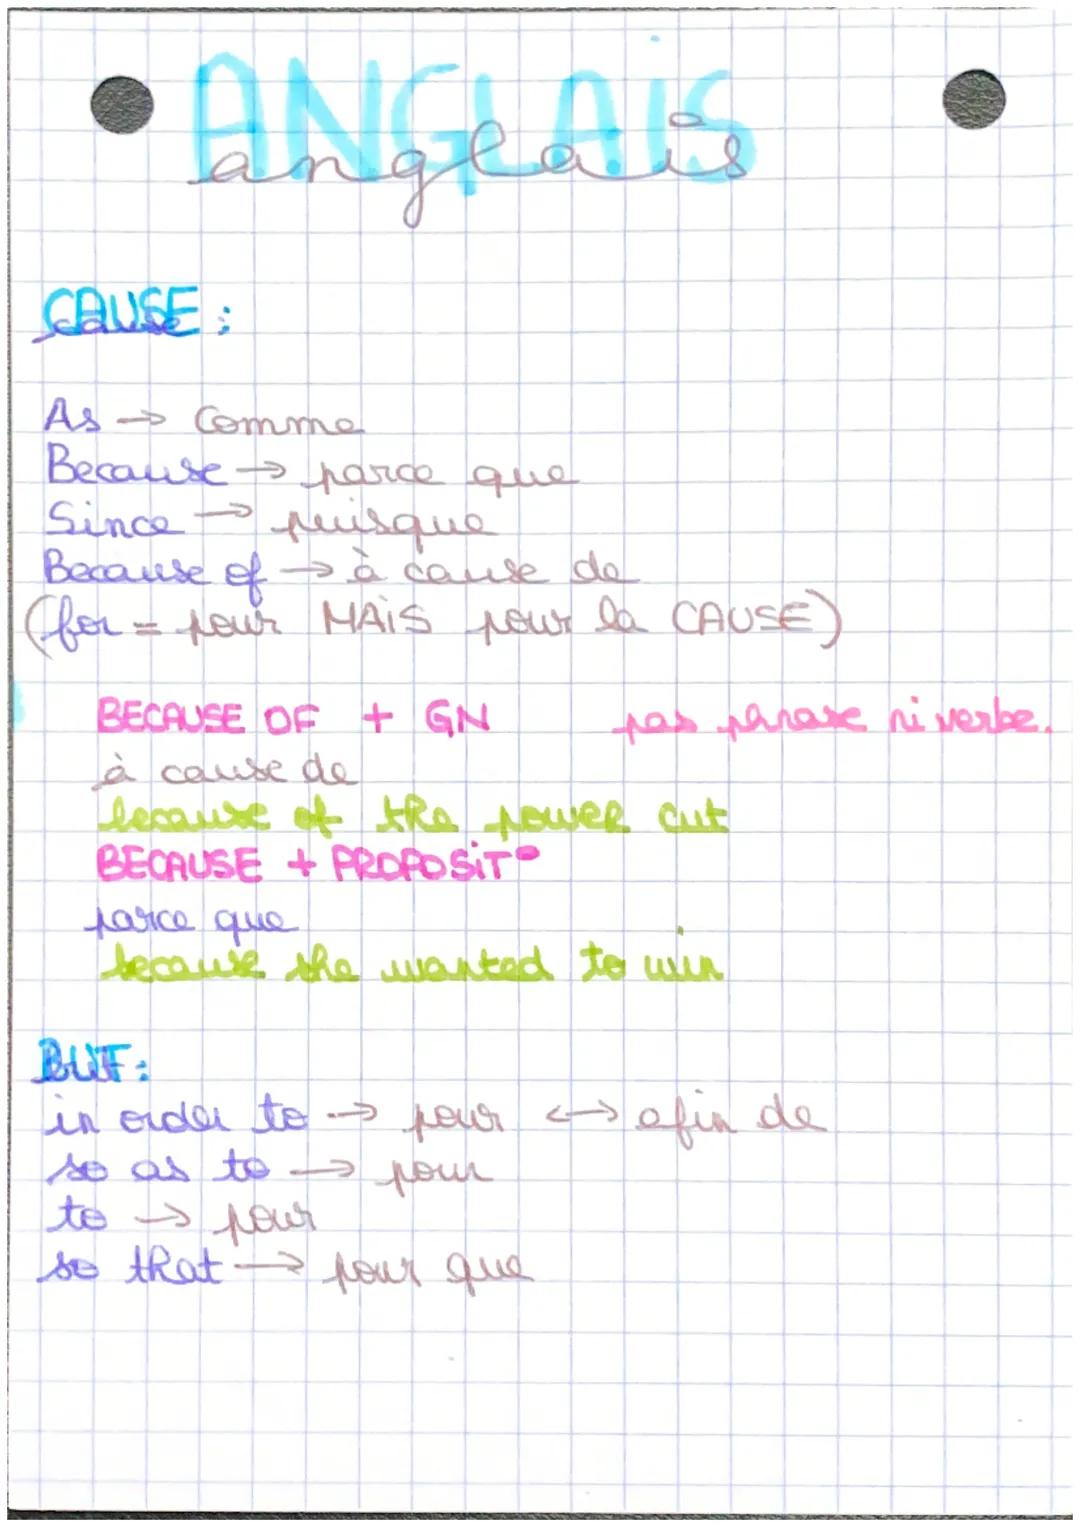 ANGLAIS
anglais
CAUSE :
cause
As → Comme
Because → parce que
Since → puisque
Because of → à cause de
(for = pour MAIS pour la CAUSE)
BECAUSE OF + GN pas phrase ni verbe.
à cause de
because of the power cut
BECAUSE + PROPOSIT°
parce que
because she wanted to win
BUT :
in order to → pour ↔ afin de
so as to → pour
to → pour
so that → pour que